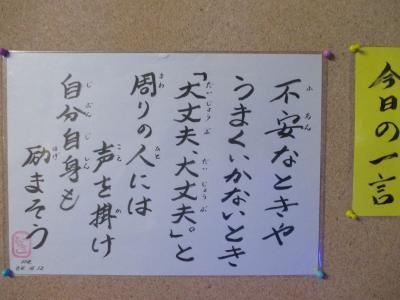 今日の一言
不安なときや
うまくいかないとき
「大丈夫、大丈夫。」と
周りの人には
声を掛け
自分自身も
励まそう